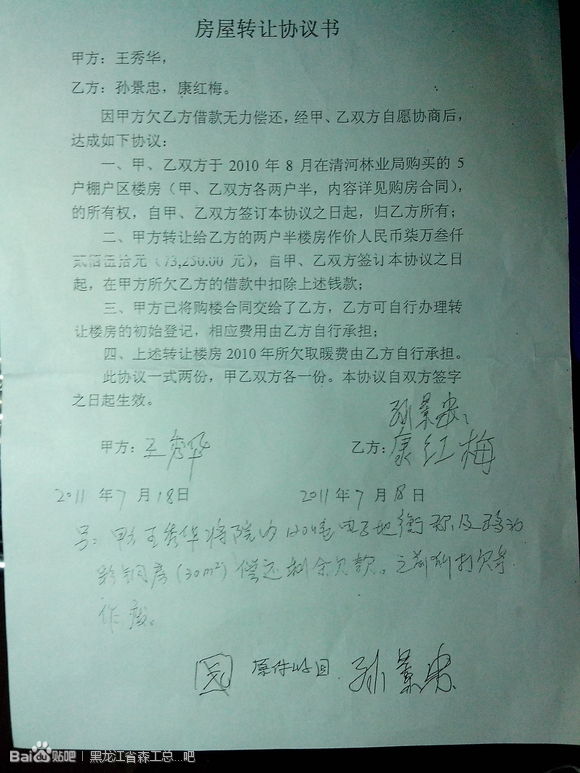 房屋转让协议书
甲方：王秀华，
乙方：孙景忠，康红梅。
因甲方欠乙方借款无力偿还，经甲、乙双方自愿协商后，
达成如下协议：
一、甲、乙双方于 2010 年 8 月在清河林业局购买的 5
户棚户区楼房（甲、乙双方各两户半，内容详见购房合同），
的所有权，自甲、乙双方签订本协议之日起，归乙方所有；
二、甲方转让给乙方的两户半楼房作价人民币柒万叁仟
贰佰伍拾元（73,250.00 元），自甲、乙双方签订本协议之日
起，在甲方所欠乙方的借款中扣除上述钱款；
三、甲方已将购楼合同交给了乙方，乙方可自行办理转
让楼房的初始登记，相应费用由乙方自行承担；
四、上述转让楼房 2010 年所欠取暖费由乙方自行承担。
此协议一式两份，甲乙双方各一份。本协议自双方签字
之日起生效。
孙景忠
甲方：王秀华 乙方：康红梅
2011 年 7 月 18 日 2011 年 7 月 18 日
另：甲方王秀华将院内120吨电子地衡称及移动
彩钢房（30m²）偿还剩余欠款。之前所打欠条
作废。
原件收回 孙景忠
Bai du 贴吧 | 黑龙江省森工总...吧